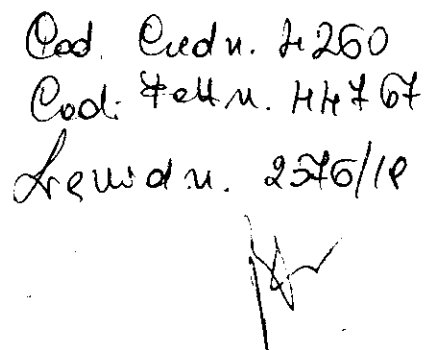 Cod. Cred n. 4260
Cod. Fatt n. 44767
Liquid n. 2576/18